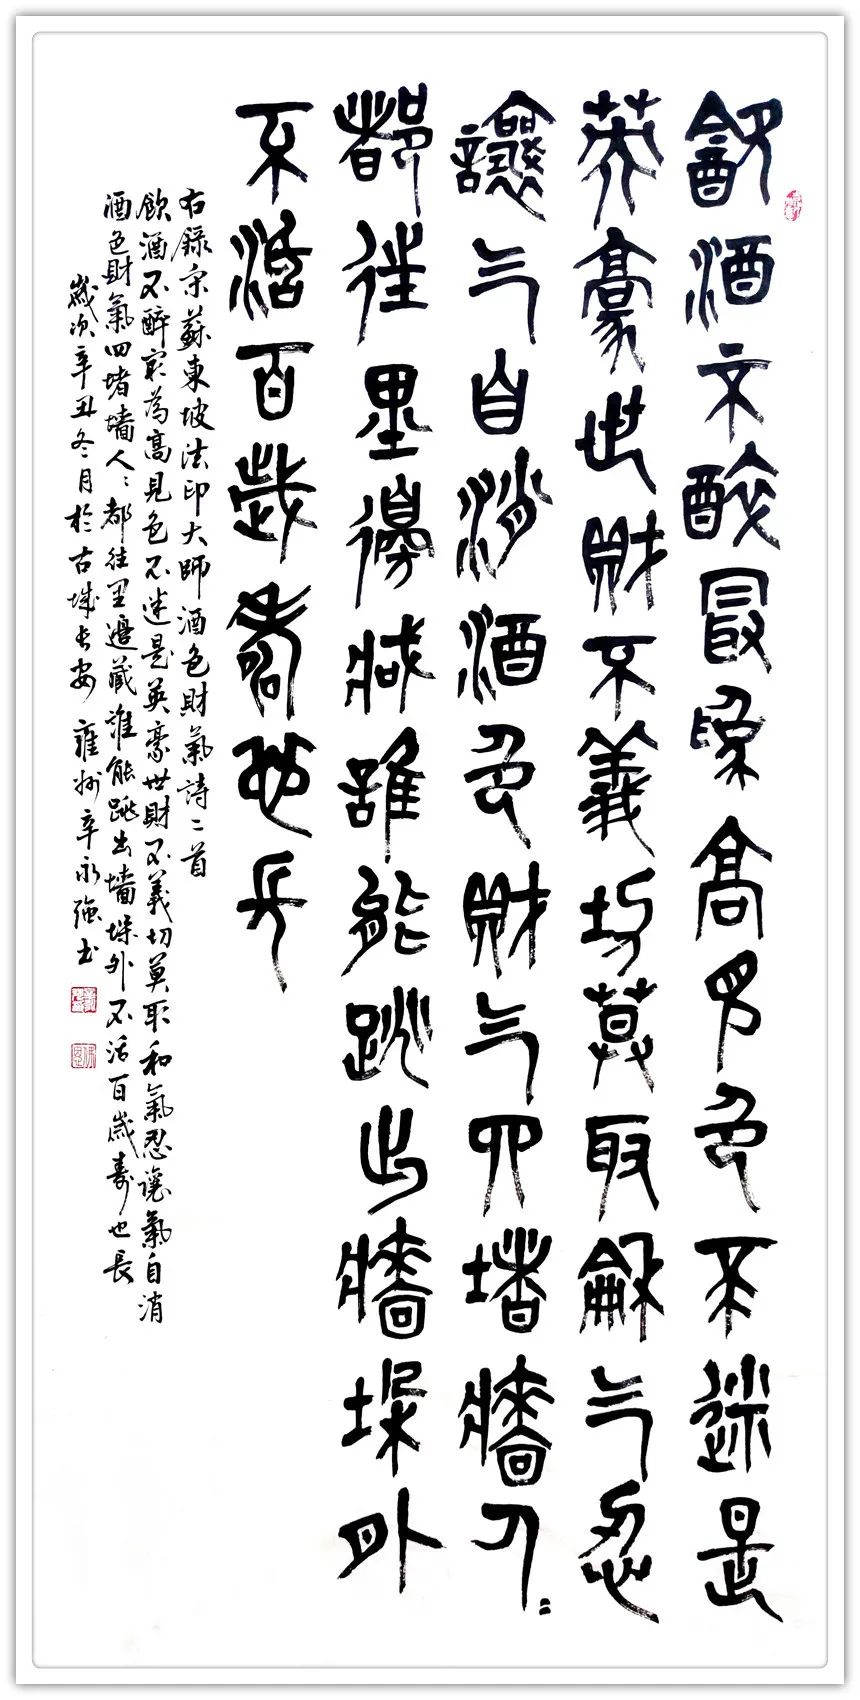 飲酒不醉最爲高見色不迷是
英豪世財不義切莫取龢气忍
讓气自消酒色財气四堵牆人〻
都往里邊藏誰能跳出牆垛外
不活百歲壽也長
右錄宋蘇東坡法印大師酒色財氣詩二首
飲酒不醉冣為高見色不迷是英豪世財不義切莫取和氣忍讓氣自消
酒色財氣四堵墻人〻都往里邊藏誰能跳出墻垛外不活百歲壽也長
歲次辛丑冬月於古城長安雍州辛永强书